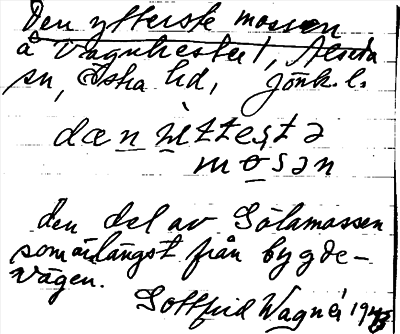 Den ytterste mossen
å Vagnhester!, Alseda
sn, Östra hd, Jönk. l.
dæn ìttesta
mosən
den del av Götamossen
som är längst från bygde-
vägen.
Gottfrid Wagnér 1945